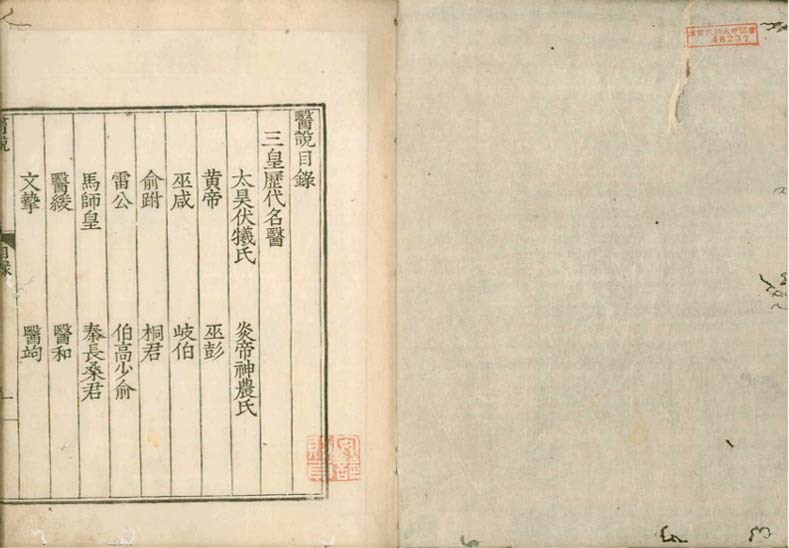 48237
醫說目錄
三皇歷代名醫
太昊伏犧氏 炎帝神農氏
黄帝 巫彭
巫咸 岐伯
俞跗 桐君
雷公 伯高少俞
馬師皇 秦長桑君
醫緩 醫和
文摯 醫竘
醫說 目錄 一